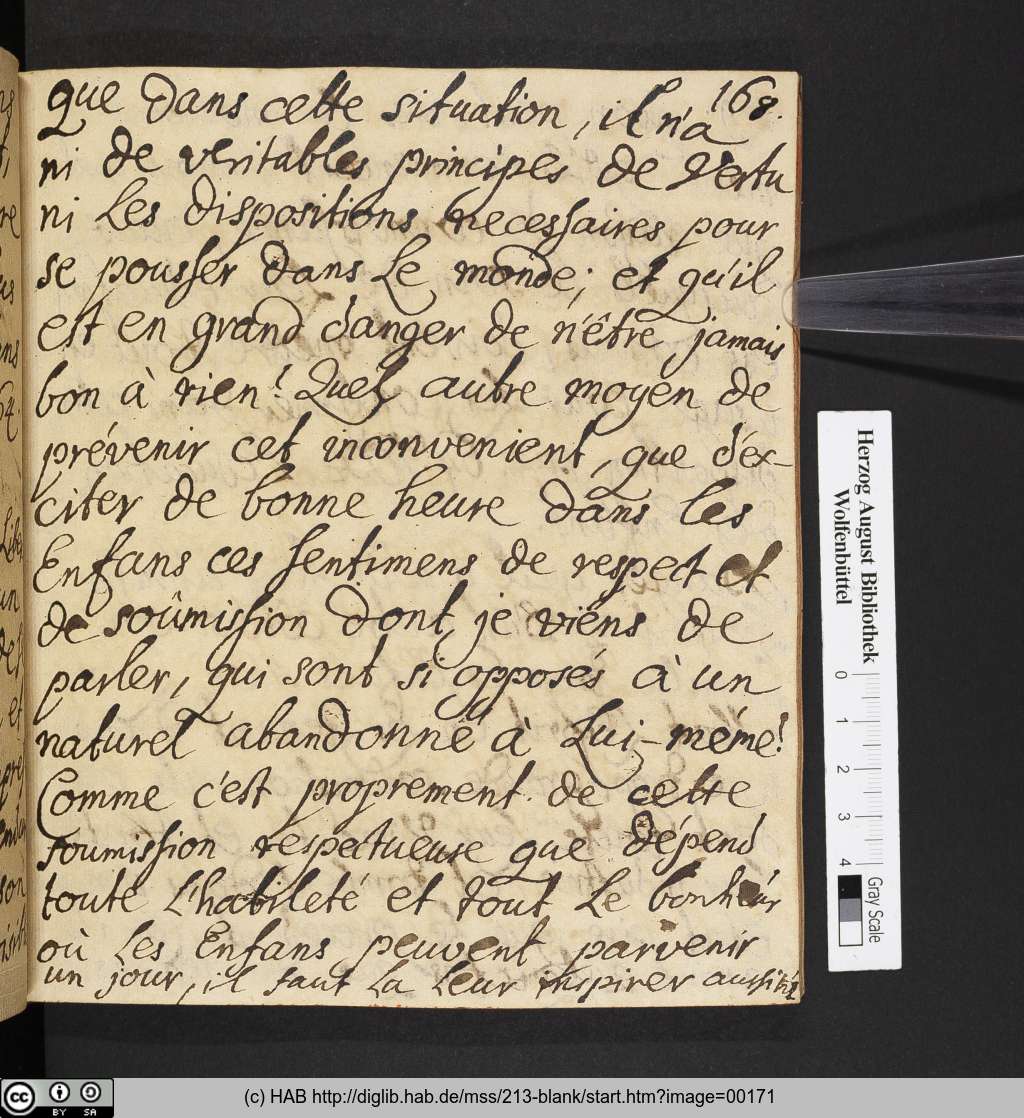 168.
que dans cette situation, il n'a
ni de veritables principes de vertu
ni les dispositions necessaires pour
se pousser dans le monde; et qu'il
est en grand danger de n'être jamais
bon à rien! Quel autre moyen de
prévenir cet inconvenient, que d'éx-
citer de bonne heure dans les
Enfans ces sentimens de respect et
de soûmission dont je viens de
parler, qui sont si opposés à un
naturel abandonné à Lui-même!
Comme c'est proprement de cette
soumission respectueuse que dépend
toute l'habileté et tout le bonheur
où les Enfans peuvent parvenir
un jour, il faut la leur inspirer aussitôt
Herzog August Bibliothek
Wolfenbüttel
0 1 2 3 4
Gray Scale
cc BY SA
(c) HAB http://diglib.hab.de/mss/213-blank/start.htm?image=00171